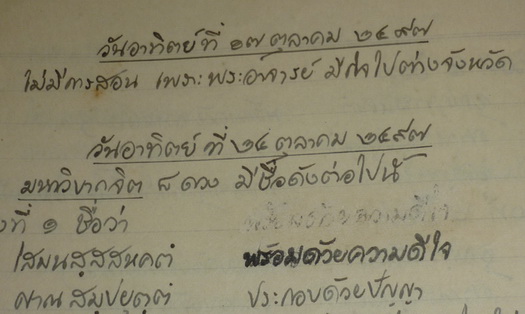 วันอาทิตย์ที่ ๑๗ ตุลาคม ๒๔๙๗
ไม่มีการสอน เพราะพระอาจารย์ มีกิจไปต่างจังหวัด
วันอาทิตย์ ที่ ๒๔ ตุลาคม ๒๔๙๗
มหาวิบากจิต ๘ ดวง มีชื่อดังต่อไปนี้
ที่ ๑ ชื่อว่า
โสมนสฺสสหคตํ พร้อมด้วยความดีใจ
ญาณสมฺปยุตฺตํ ประกอบด้วยปัญญา